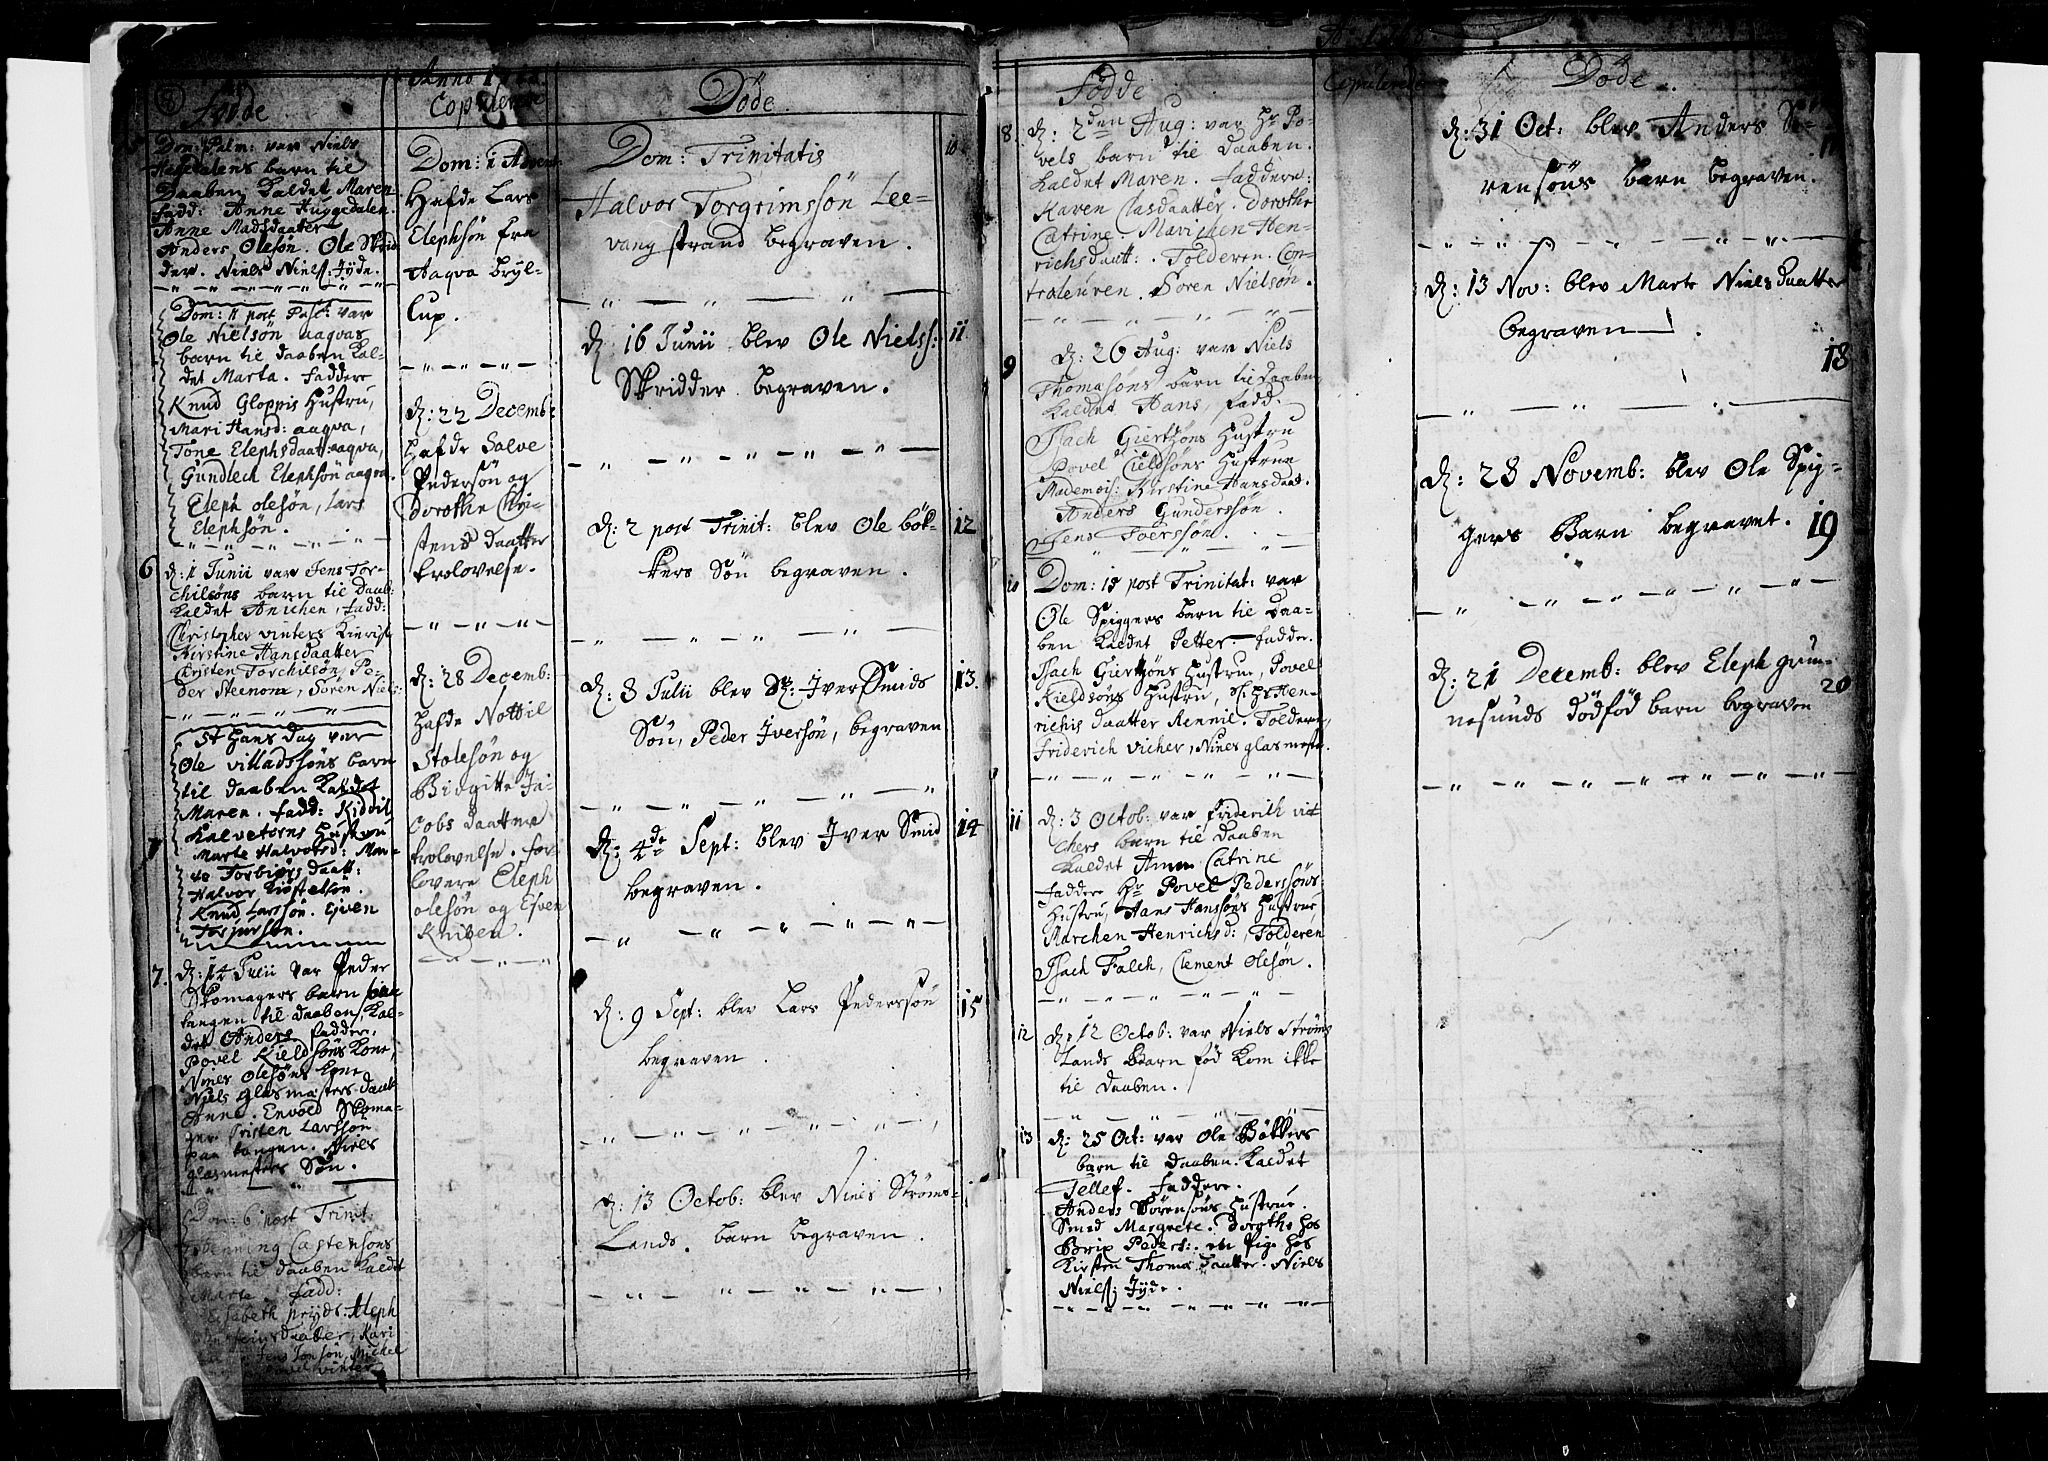 Anno
Fødde
Copulerede
Døde
5
Dom: Palm: var Niels
barn til
Daaben kaldet Maren
fadd: Anne Huggedalen.
Anne Madsdaatter
Anders Olesøn. Ole Skrid
der. Niels Niels: Jyde.
Dom: post Pasc: var
Ole Nielsøn aaqvas
barn til daaben kal-
det Marta. Faddere
Knud Gloppis Hustru,
Mari Hansd: aaqva,
Tone Elephsdaatt: aaqva,
Gundlech Elephsøn aaqva.
Eleph olesøn, Lars
Elephsøn.
6
D: 1 Junii var Jens Tor-
chilsøns barn til Daab:
kaldet Anichen, Fadd:
Christopher vinters
Kirstine Hansdaatter
Christen Torchilsøn, Pe-
der Steenom, Søren Niels:
St Hans Dag var
Ole villadssøns barn
til daaben kaldet
Maren. Fadd: Kiddil
Kalvetorns Hustru
Marte Halvorsd: Mar-
te Torbiørs daatt:
Halvor
Knud Larssøn. Ejven
7.
D: 14 Julii var Peder
Skomagers barn paa
tangen til daaben, kal-
det Anders faddere,
Povel Kieldsøns Kone,
Niels Olesøns kone
Niels Glasmesters daatt
Anne. Envold Skoma-
ger. Cristen Larssøn
paa tangen. Niels
glasmesters Søn.
Dom: 6 post Trinit:
Henning Castensøns
barn til daaben kaldet
Marte. Fadd:
Elisabeth pryds. Aleph
daatter, Kari
Jens Jonsøn, Michel
vinter
Dom: 1 Advent
Hafde Lars
Elephsøn fra
Aaqva bryl-
lup.
D: 22 Decemb:
Hafde Salve
Pedersøn og
Dorothe Chri-
stens daatter
trolovelse.
D: 28 Decemb:
Hafde Nottil
Stolesøn og
Birgitte Ja-
cobs daatter
trolovelse. for-
lovere Eleph
olesøn og Esven
Kniben.
Dom: Trinitatis
10
Halvor Torgrimssøn Lee-
vang strand begraven.
D: 16 Junii blev Ole Nielss:
11
Skridder begraven.
D: 2 post Trinit: blev Ole bøk-
12
kers Søn begraven.
D: 8 Julii blev Sr: Iver Smids
13.
Søn, Peder Iversøn, begraven
D: 4de Sept: blev Iver Smid
14
begraven.
D: 9 Sept: blev Lars Pederssøn
15
begraven.
D: 13 Octob: blev Niels Strøms-
Lands. barn begraven.
Fødde
Copulerede
Døde
8.
D: 2den Aug: var Hr Po-
vels barn til daaben.
kaldet Maren. Faddere:
Karen Clasdaatter. Dorothe
Catrine Marichen Hen-
richsdaatt: . Tolderen. Con-
traleuren. Søren Nielsøn.
9
D: 26 Aug: var Niels
Thomasøns barn til daaben
kaldet Hans, Fadd.
Isach Giertsøns Hustru
Povel Cieldsøns Hustrue
Mademois: Kirstine Hansdaat.
Anders Gunderssøn.
Jens Toerssøn.
10
Dom: 15 post Trinitat: var
Ole Spiggers barn til daa-
ben kaldet Petter. Fadder.
Isach Giertsøns Hustrue, Povel
Kieldsøns Hustru, Hen-
richis daatter Rennic. Tolderen,
Friderich vicher, Niels glasmester.
11
D: 3 Octob: var Friderich vit
chers barn til daaben
kaldet Anna Catrine
Faddere Hr Povel Pederssøns
Hustru, Hans Hanssøns Hustrue,
Marchen Henrichsd:, Tolderen
Isach Falch, Clement Olesøn.
12
D: 12 Octob: var Niels Strøms
Lands Barn fød kom ikke
til daaben.
13
D: 25 Oct: var Ole Bøkkers
barn til daaben. kaldet
Tellef. Faddere.
Anders Sørensøns Hustrue.
Smed Margrete. Dorothe hos
Brix Peders: . en Pige hos
Kirsten Thomæ daatter. Niels
Niels: Jyde.
D: 31 Oct: blev Anders Sø-
rensøns barn begraven.
D: 13 Nov: blev Marte Nielsdaatter
begraven.
18
D: 28 Novemb: blev Ole Spig-
gers Barn begravet.
19
D: 21 Decemb: blev Eleph grim-
20
nesunds dødfød barn begraven